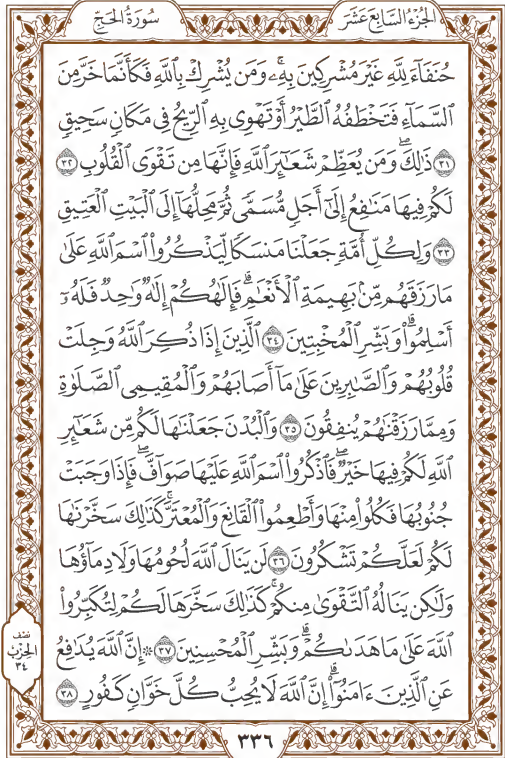 سُورَةُ الحَجّ
الجُزْءُ السَّابِعَ عَشَرَ
حُنَفَآءَ لِلَّهِ غَيْرَ مُشْرِكِينَ بِهِۦۚ وَمَن يُشْرِكْ بِٱللَّهِ فَكَأَنَّمَا خَرَّ مِنَ
ٱلسَّمَآءِ فَتَخْطَفُهُ ٱلطَّيْرُ أَوْ تَهْوِي بِهِ ٱلرِّيحُ فِي مَكَانٖ سَحِيقٖ
٣١ ذَٰلِكَۖ وَمَن يُعَظِّمْ شَعَٰٓئِرَ ٱللَّهِ فَإِنَّهَا مِن تَقْوَى ٱلْقُلُوبِ ٣٢
لَكُمْ فِيهَا مَنَٰفِعُ إِلَىٰٓ أَجَلٖ مُّسَمّٗى ثُمَّ مَحِلُّهَآ إِلَى ٱلْبَيْتِ ٱلْعَتِيقِ
٣٣ وَلِكُلِّ أُمَّةٖ جَعَلْنَا مَنسَكٗا لِّيَذْكُرُواْ ٱسْمَ ٱللَّهِ عَلَىٰ
مَا رَزَقَهُم مِّنۢ بَهِيمَةِ ٱلْأَنْعَٰمِۗ فَإِلَٰهُكُمْ إِلَٰهٞ وَٰحِدٞ فَلَهُۥٓ
أَسْلِمُواْۗ وَبَشِّرِ ٱلْمُخْبِتِينَ ٣٤ ٱلَّذِينَ إِذَا ذُكِرَ ٱللَّهُ وَجِلَتْ
قُلُوبُهُمْ وَٱلصَّٰبِرِينَ عَلَىٰ مَآ أَصَابَهُمْ وَٱلْمُقِيمِي ٱلصَّلَوٰةِ
وَمِمَّا رَزَقْنَٰهُمْ يُنفِقُونَ ٣٥ وَٱلْبُدْنَ جَعَلْنَٰهَا لَكُم مِّن شَعَٰٓئِرِ
ٱللَّهِ لَكُمْ فِيهَا خَيْرٞۖ فَٱذْكُرُواْ ٱسْمَ ٱللَّهِ عَلَيْهَا صَوَآفَّۖ فَإِذَا وَجَبَتْ
جُنُوبُهَا فَكُلُواْ مِنْهَا وَأَطْعِمُواْ ٱلْقَانِعَ وَٱلْمُعْتَرَّۚ كَذَٰلِكَ سَخَّرْنَٰهَا
لَكُمْ لَعَلَّكُمْ تَشْكُرُونَ ٣٦ لَن يَنَالَ ٱللَّهَ لُحُومُهَا وَلَا دِمَآؤُهَا
وَلَٰكِن يَنَالُهُ ٱلتَّقْوَىٰ مِنكُمْۚ كَذَٰلِكَ سَخَّرَهَا لَكُمْ لِتُكَبِّرُواْ
ٱللَّهَ عَلَىٰ مَا هَدَىٰكُمْۗ وَبَشِّرِ ٱلْمُحْسِنِينَ ٣٧ ۞ إِنَّ ٱللَّهَ يُدَٰفِعُ
عَنِ ٱلَّذِينَ ءَامَنُوٓاْۗ إِنَّ ٱللَّهَ لَا يُحِبُّ كُلَّ خَوَّانٖ كَفُورٍ ٣٨
نصف
الحزب
٣٤
٣٣٦